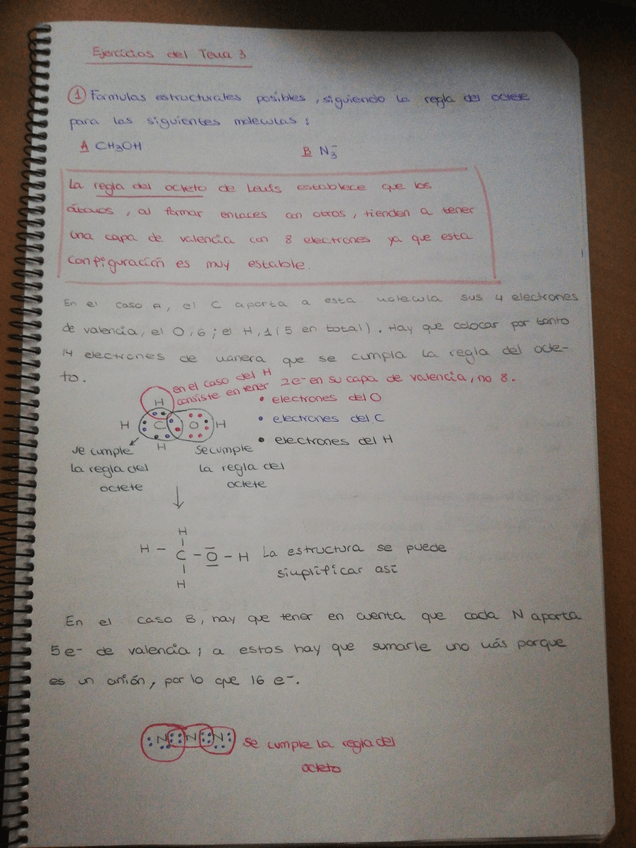 Ejercicios del Tema 3
① Formulas estructurales posibles, siguiendo la regla del octete
para las siguientes moleculas:
A CH3OH B N3-
La regla del octeto de Lewis establece que los
átomos, al formar enlaces con otros, tienden a tener
una capa de valencia con 8 electrones ya que esta
configuración es muy estable.
En el caso A, el C aporta a esta molecula sus 4 electrones
de valencia, el O, 6; el H, 1 (5 en total). Hay que colocar por tanto
14 electrones de manera que se cumpla la regla del octe-
to.
en el caso del H
consiste en tener 2e- en su capa de valencia, no 8.
H
• electrones del O
H C O H
• electrones del C
H
• electrones del H
se cumple
la regla del
octete
Se cumple
la regla del
octete
H
H - C - O - H
H
La estructura se puede
simplificar así
En el caso B, hay que tener en cuenta que cada N aporta
5e- de valencia; a estos hay que sumarle uno más porque
es un anión, por lo que 16 e-.
N N N
Se cumple la regla del
octeto